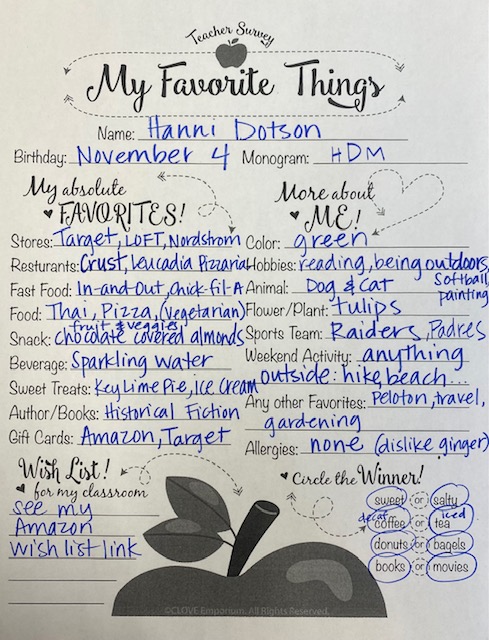 Teacher Survey
My Favorite Things
Name: Hanni Dotson
Birthday: November 4 Monogram: HDM
My absolute
FAVORITES!
Stores: Target, LOFT, Nordstrom
Resturants: Crust, Leucadia Pizzaria
Fast Food: In-and-Out, Chick-fil-A
Food: Thai, Pizza, (vegetarian)
fruit & veggies
Snack: chocolate covered almonds
Beverage: Sparkling water
Sweet Treats: Key Lime Pie, Ice Cream
Author/Books: Historical Fiction
Gift Cards: Amazon, Target
More about
ME!
Color: green
Hobbies: reading, being outdoors,
Softball,
painting
Animal: Dog & Cat
Flower/Plant: tulips
Sports Team: Raiders, Padres
Weekend Activity: anything
outside: hike, beach...
Any other Favorites: Peloton, travel,
gardening
Allergies: none (dislike ginger)
Wish List!
for my classroom
see my
Amazon
wish list link
Circle the Winner!
sweet or salty
decaf iced
coffee or tea
donuts or bagels
books or movies
©CLOVE Emporium. All Rights Reserved.